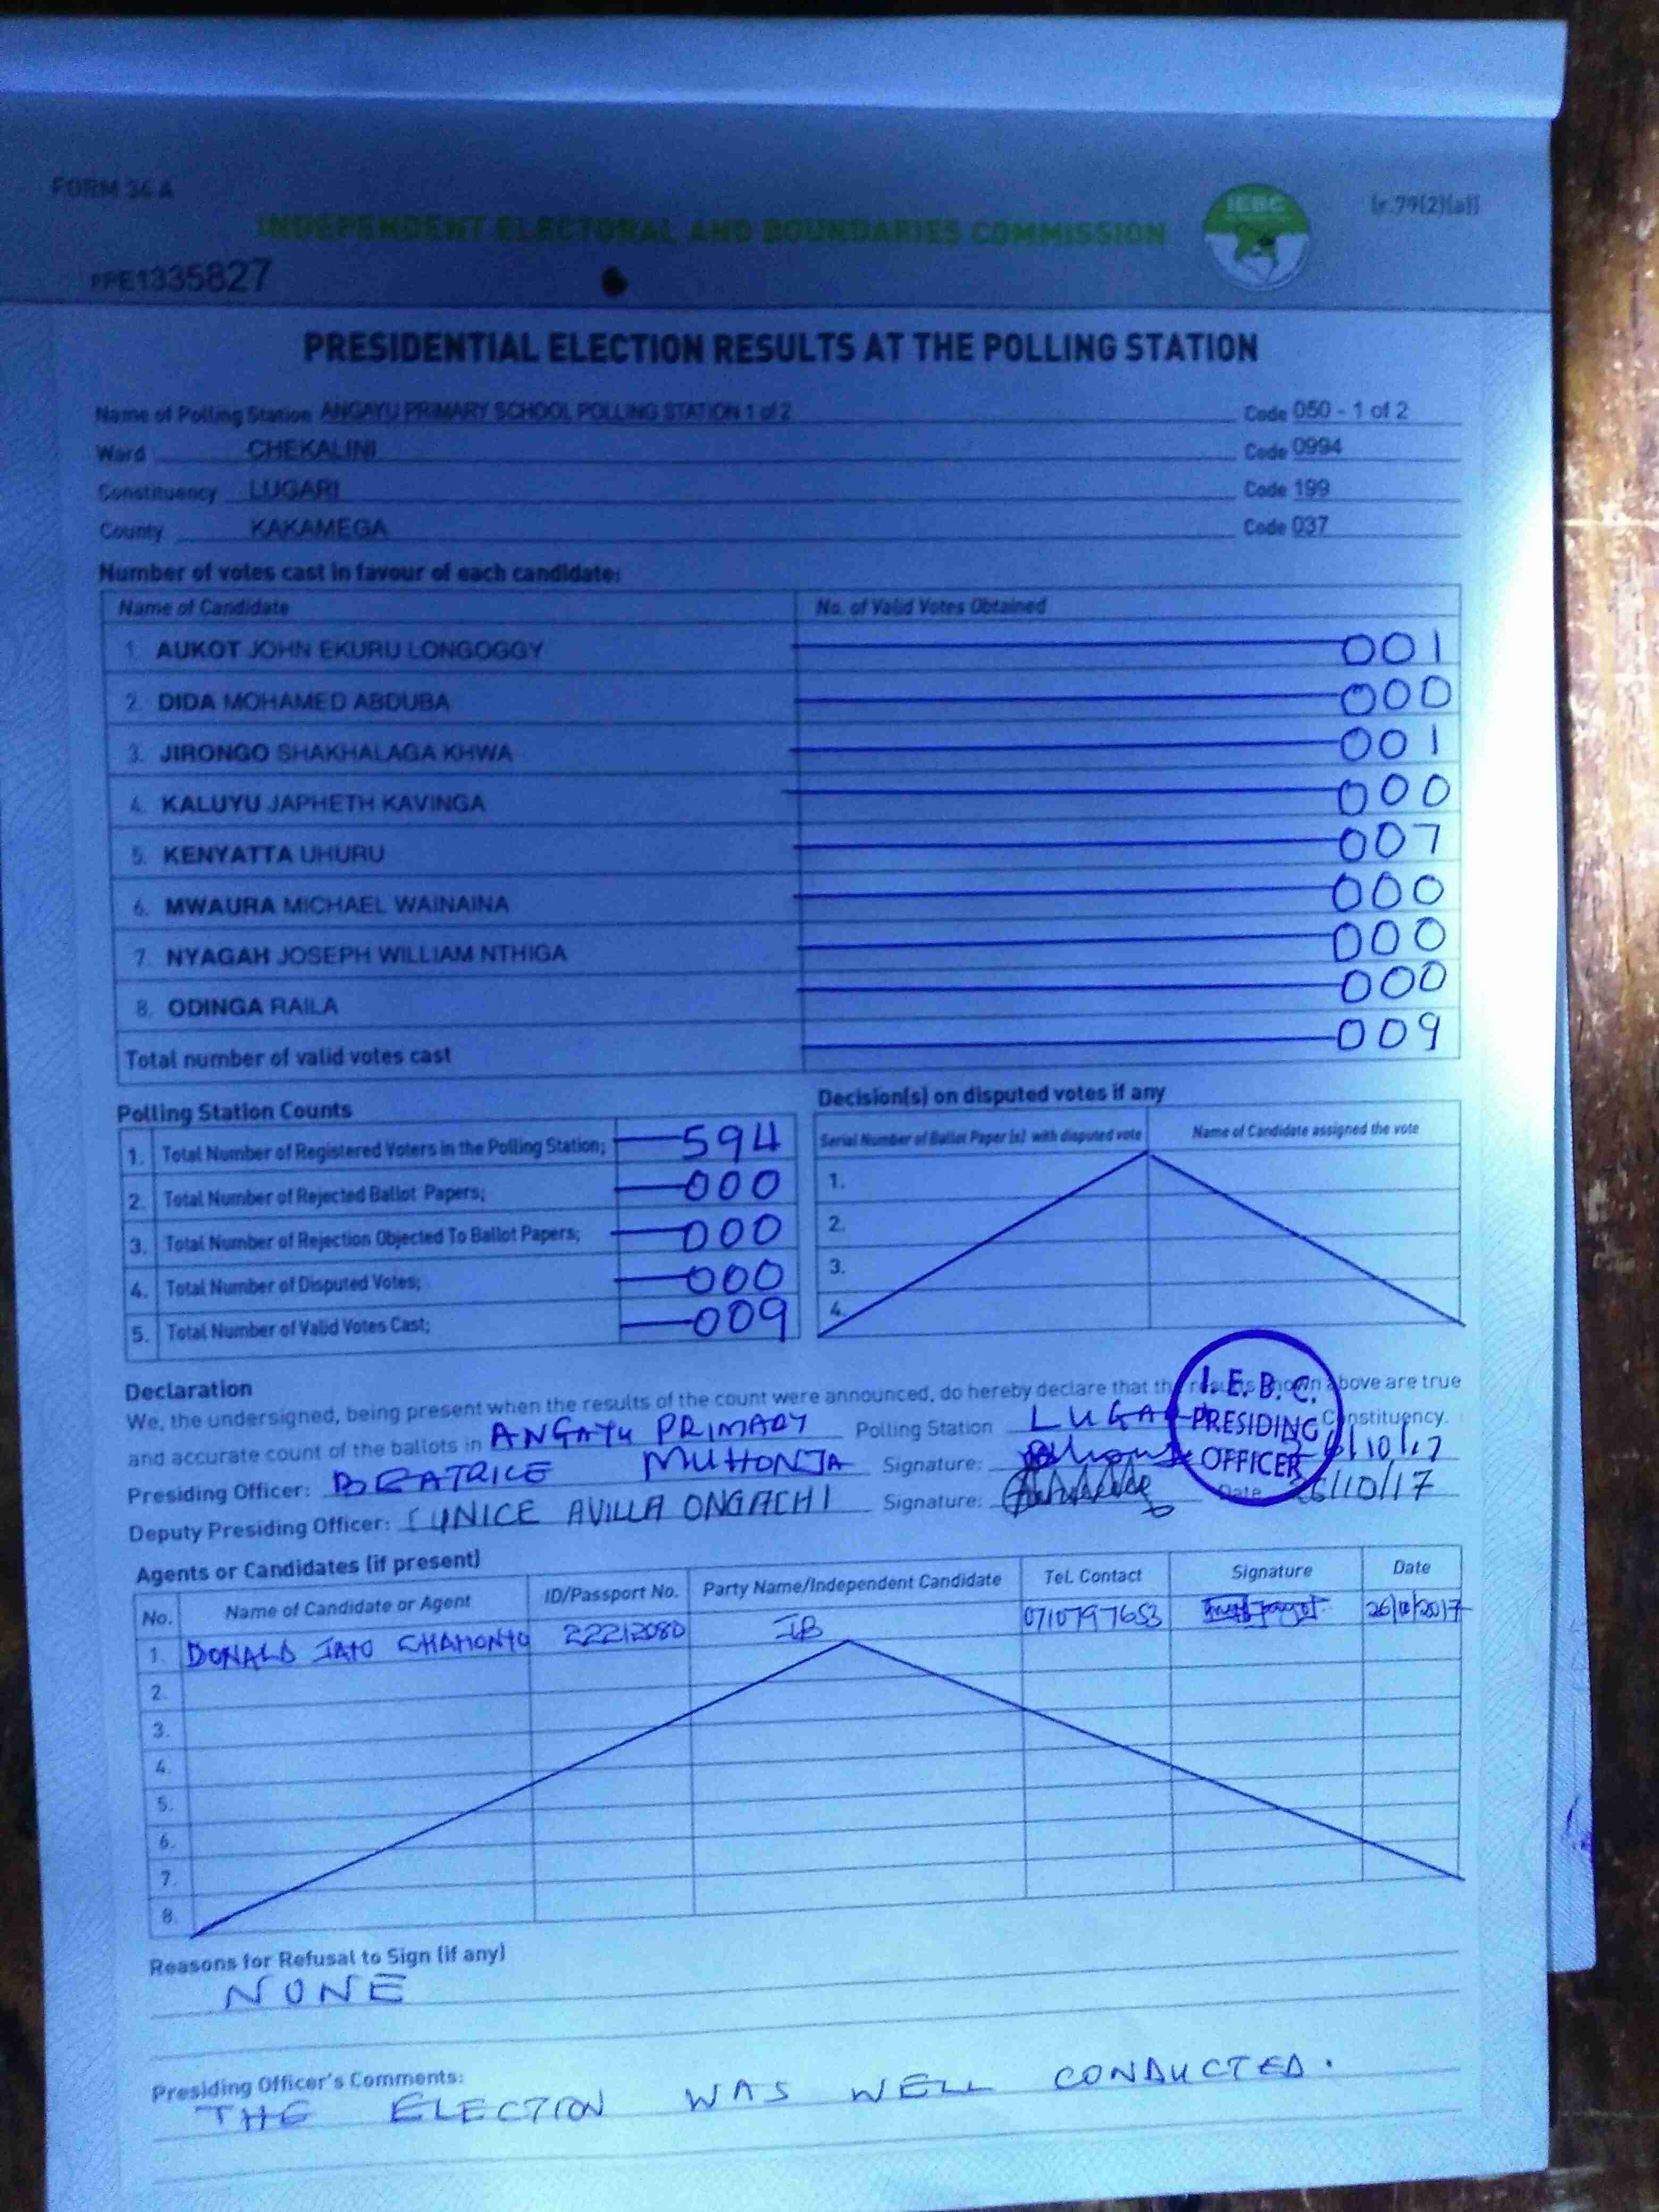 FORM 34 A
(r.79(2)(a))
IEBC
INDEPENDENT ELECTORAL AND BOUNDARIES COMMISSION
PPE1335827
PRESIDENTIAL ELECTION RESULTS AT THE POLLING STATION
Name of Polling Station ANGAYU PRIMARY SCHOOL POLLING STATION 1 of 2 Code 050 - 1 of 2
Ward CHEKALINI Code 0994
Constituency LUGARI Code 199
County KAKAMEGA Code 037
Number of votes cast in favour of each candidate:
Name of Candidate No. of Valid Votes Obtained
1. AUKOT JOHN EKURU LONGOGGY 001
2. DIDA MOHAMED ABDUBA 000
3. JIRONGO SHAKHALAGA KHWA 001
4. KALUYU JAPHETH KAVINGA 000
5. KENYATTA UHURU 007
6. MWAURA MICHAEL WAINAINA 000
7. NYAGAH JOSEPH WILLIAM NTHIGA 000
8. ODINGA RAILA 000
Total number of valid votes cast 009
Polling Station Counts
1. Total Number of Registered Voters in the Polling Station; 594
2. Total Number of Rejected Ballot Papers; 000
3. Total Number of Rejection Objected To Ballot Papers; 000
4. Total Number of Disputed Votes; 000
5. Total Number of Valid Votes Cast; 009
Decision(s) on disputed votes if any
Serial Number of Ballot Paper (s) with disputed vote Name of Candidate assigned the vote
1.
2.
3.
4.
Declaration
We, the undersigned, being present when the results of the count were announced, do hereby declare that the results shown above are true
and accurate count of the ballots in ANGAYU PRIMARY Polling Station Constituency.
Presiding Officer: BEATRICE MUHONJA Signature: /10/17
Deputy Presiding Officer: EUNICE AVILLA ONGACHI Signature: Date 26/10/17
I.E.B.C.
PRESIDING
OFFICER
Agents or Candidates (if present)
No. Name of Candidate or Agent ID/Passport No. Party Name/Independent Candidate Tel. Contact Signature Date
1. DONALD 22212080 0710797653 26/10/2017
2.
3.
4.
5.
6.
7.
8.
Reasons for Refusal to Sign (if any)
NONE
Presiding Officer's Comments:
THE ELECTION WAS WELL CONDUCTED.